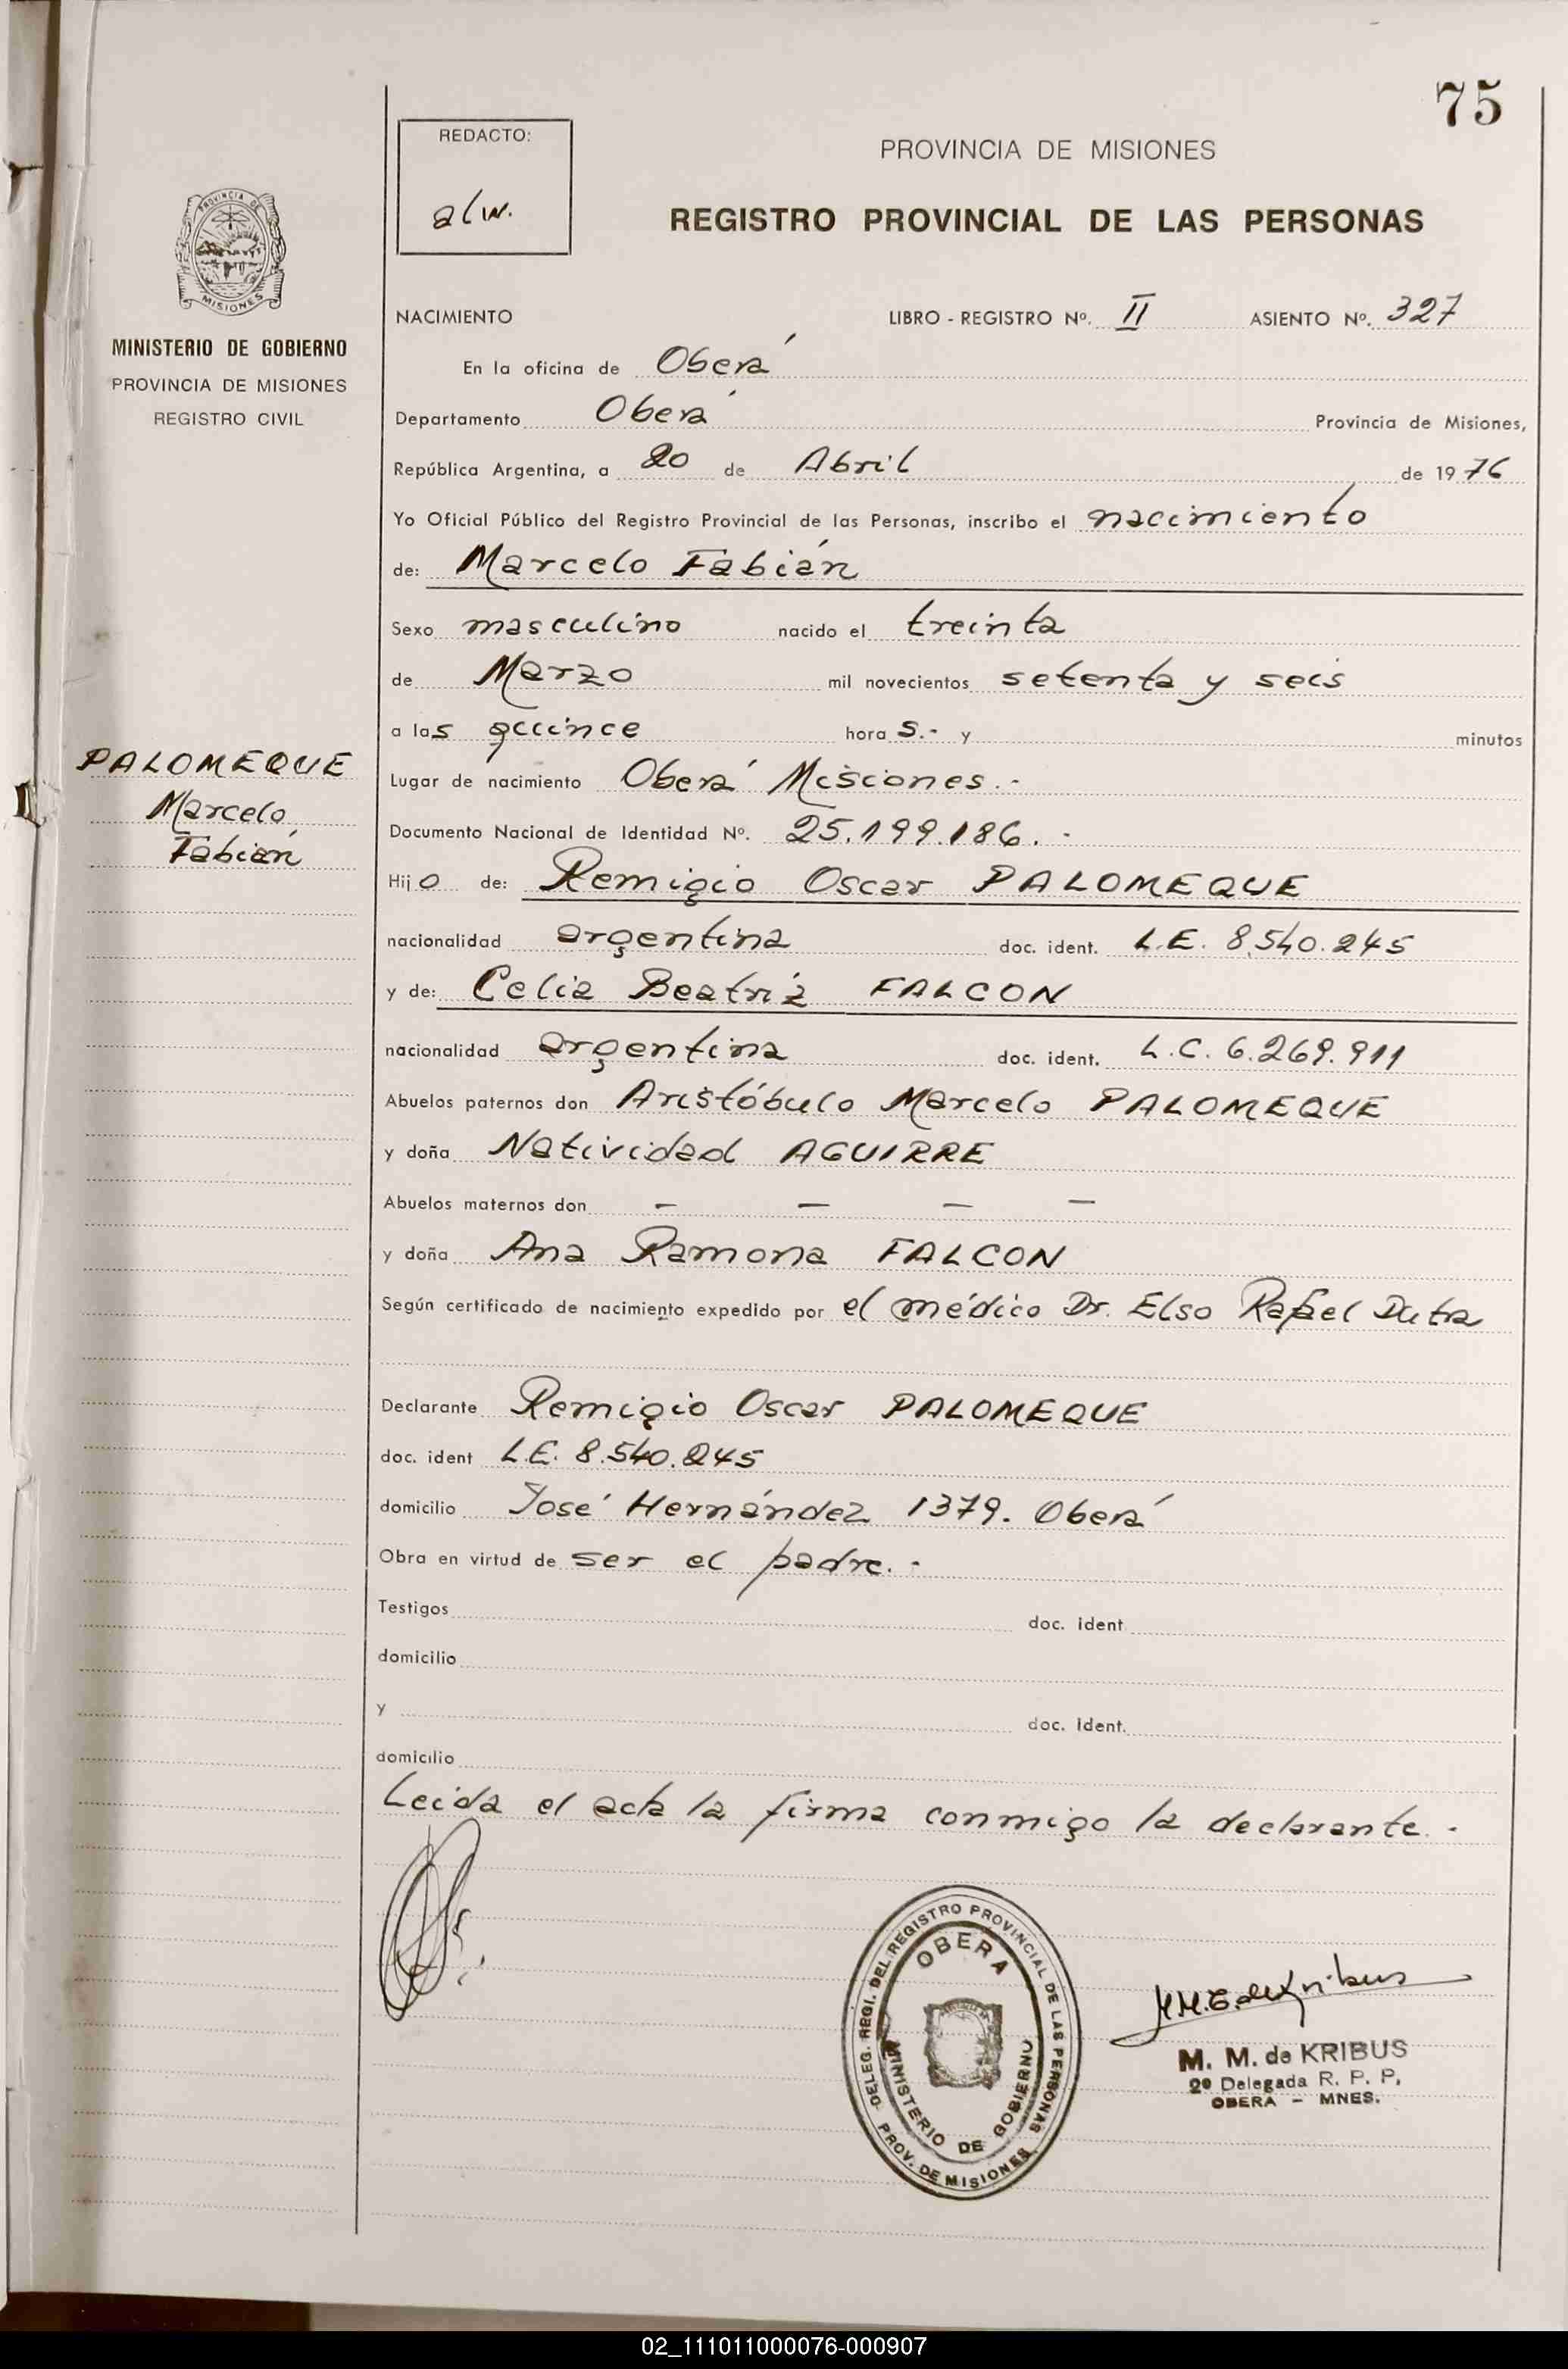 75
REDACTO:
alw.
PROVINCIA DE MISIONES
REGISTRO PROVINCIAL DE LAS PERSONAS
PROVINCIA DE
MISIONES
MINISTERIO DE GOBIERNO
PROVINCIA DE MISIONES
REGISTRO CIVIL
NACIMIENTO LIBRO - REGISTRO Nº. II ASIENTO Nº. 327
En la oficina de Oberá
Departamento Oberá Provincia de Misiones,
República Argentina, a 20 de Abril de 1976
Yo Oficial Público del Registro Provincial de las Personas, inscribo el nacimiento
de: Marcelo Fabián
Sexo masculino nacido el treinta
de Marzo mil novecientos setenta y seis
a las quince hora s.- y minutos
PALOMEQUE
Marcelo
Fabián
Lugar de nacimiento Oberá Misiones.-
Documento Nacional de Identidad Nº. 25.199.186.-
Hijo de: Remigio Oscar PALOMEQUE
nacionalidad argentina doc. ident. L.E. 8.540.245
y de: Celia Beatriz FALCON
nacionalidad argentina doc. ident. L.C. 6.269.911
Abuelos paternos don Aristóbulo Marcelo PALOMEQUE
y doña Natividad AGUIRRE
Abuelos maternos don — — — —
y doña Ana Ramona FALCON
Según certificado de nacimiento expedido por el médico Dr. Elso Rafael Dutra
Declarante Remigio Oscar PALOMEQUE
doc. ident L.E. 8.540.245
domicilio José Hernández 1379. Oberá
Obra en virtud de ser el padre.-
Testigos doc. ident.
domicilio
y doc. ident.
domicilio
Leida el acta la firma conmigo la declarante.-
DELEG. REGI. DEL REGISTRO PROVINCIAL DE LAS PERSONAS
OBERA
MINISTERIO DE GOBIERNO
PROV. DE MISIONES
M. M. de KRIBUS
2º Delegada R. P. P.
OBERA - MNES.
02_111011000076-000907